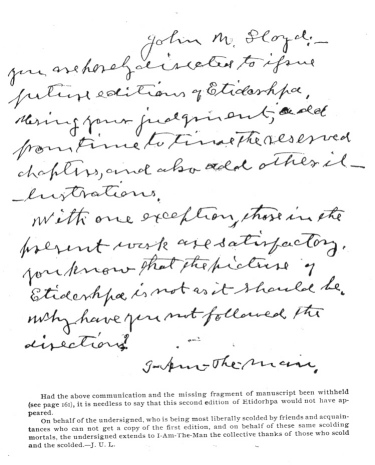 John M. Lloyd:—
you are hereby directed to issue
future editions of Etidorhpa,
using your judgment; add
from time to time the reserved
chapters, and also add other il-
lustrations.
With one exception, those in the
present work are satisfactory.
you know that the picture of
Etidorhpa is not as it should be.
Why have you not followed the
directions?
I-Am-The-Man.
Had the above communication and the missing fragment of manuscript been withheld
(see page 161), it is needless to say that this second edition of Etidorhpa would not have ap-
peared.
On behalf of the undersigned, who is being most liberally scolded by friends and acquain-
tances who can not get a copy of the first edition, and on behalf of these same scolding
mortals, the undersigned extends to I-Am-The-Man the collective thanks of those who scold
and the scolded.—J. U. L.